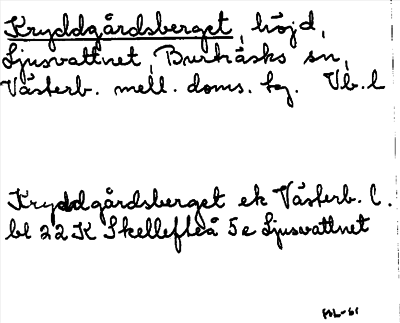 Kryddgårdsberget, höjd,
Ljusvattnet, Burträsks sn,
Västerb. mell. doms. tg. Vb. l
Kryddgårdsberget ek Västerb. l.
bl 22 K Skellefteå 5e Ljusvattnet